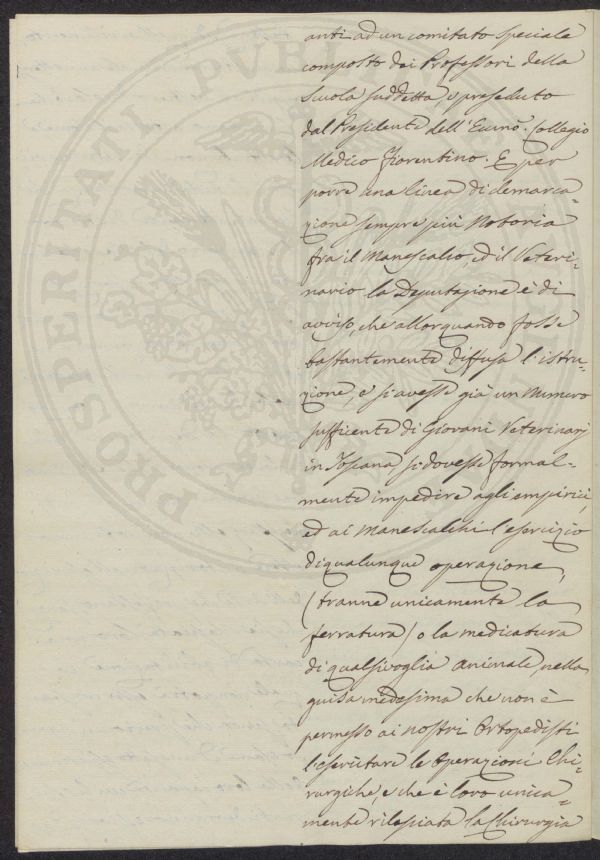 anti ad un comitato speciale
composto dei Professori della
Scuola suddetta, e preseduto
dal Presidente dell'Eccmo. Collegio
Medico Fiorentino. E per
porre una linea di demarca=
zione sempre più notoria
fra il Manescalco, ed il Veteri=
nario la Deputazione è di
avviso, che allorquando fosse
bastantemente diffusa l'istru=
zione, e si avesse già un numero
sufficente di Giovani Veterinarj
in Toscana si dovesse formal=
mente impedire agli empirici,
ed ai Manescalchi l'esercizio
di qualunque operazione,
(tranne unicamente la
ferratura) o la medicatura
di qualsivoglia animale, nella
guisa medesima che non è
permesso ai nostri Ortopedisti
l'esercitare le Operazioni Chi=
rurgiche, e che è loro unica=
mente rilasciata la Chirurgia
PROSPERITATI PVBLICAE